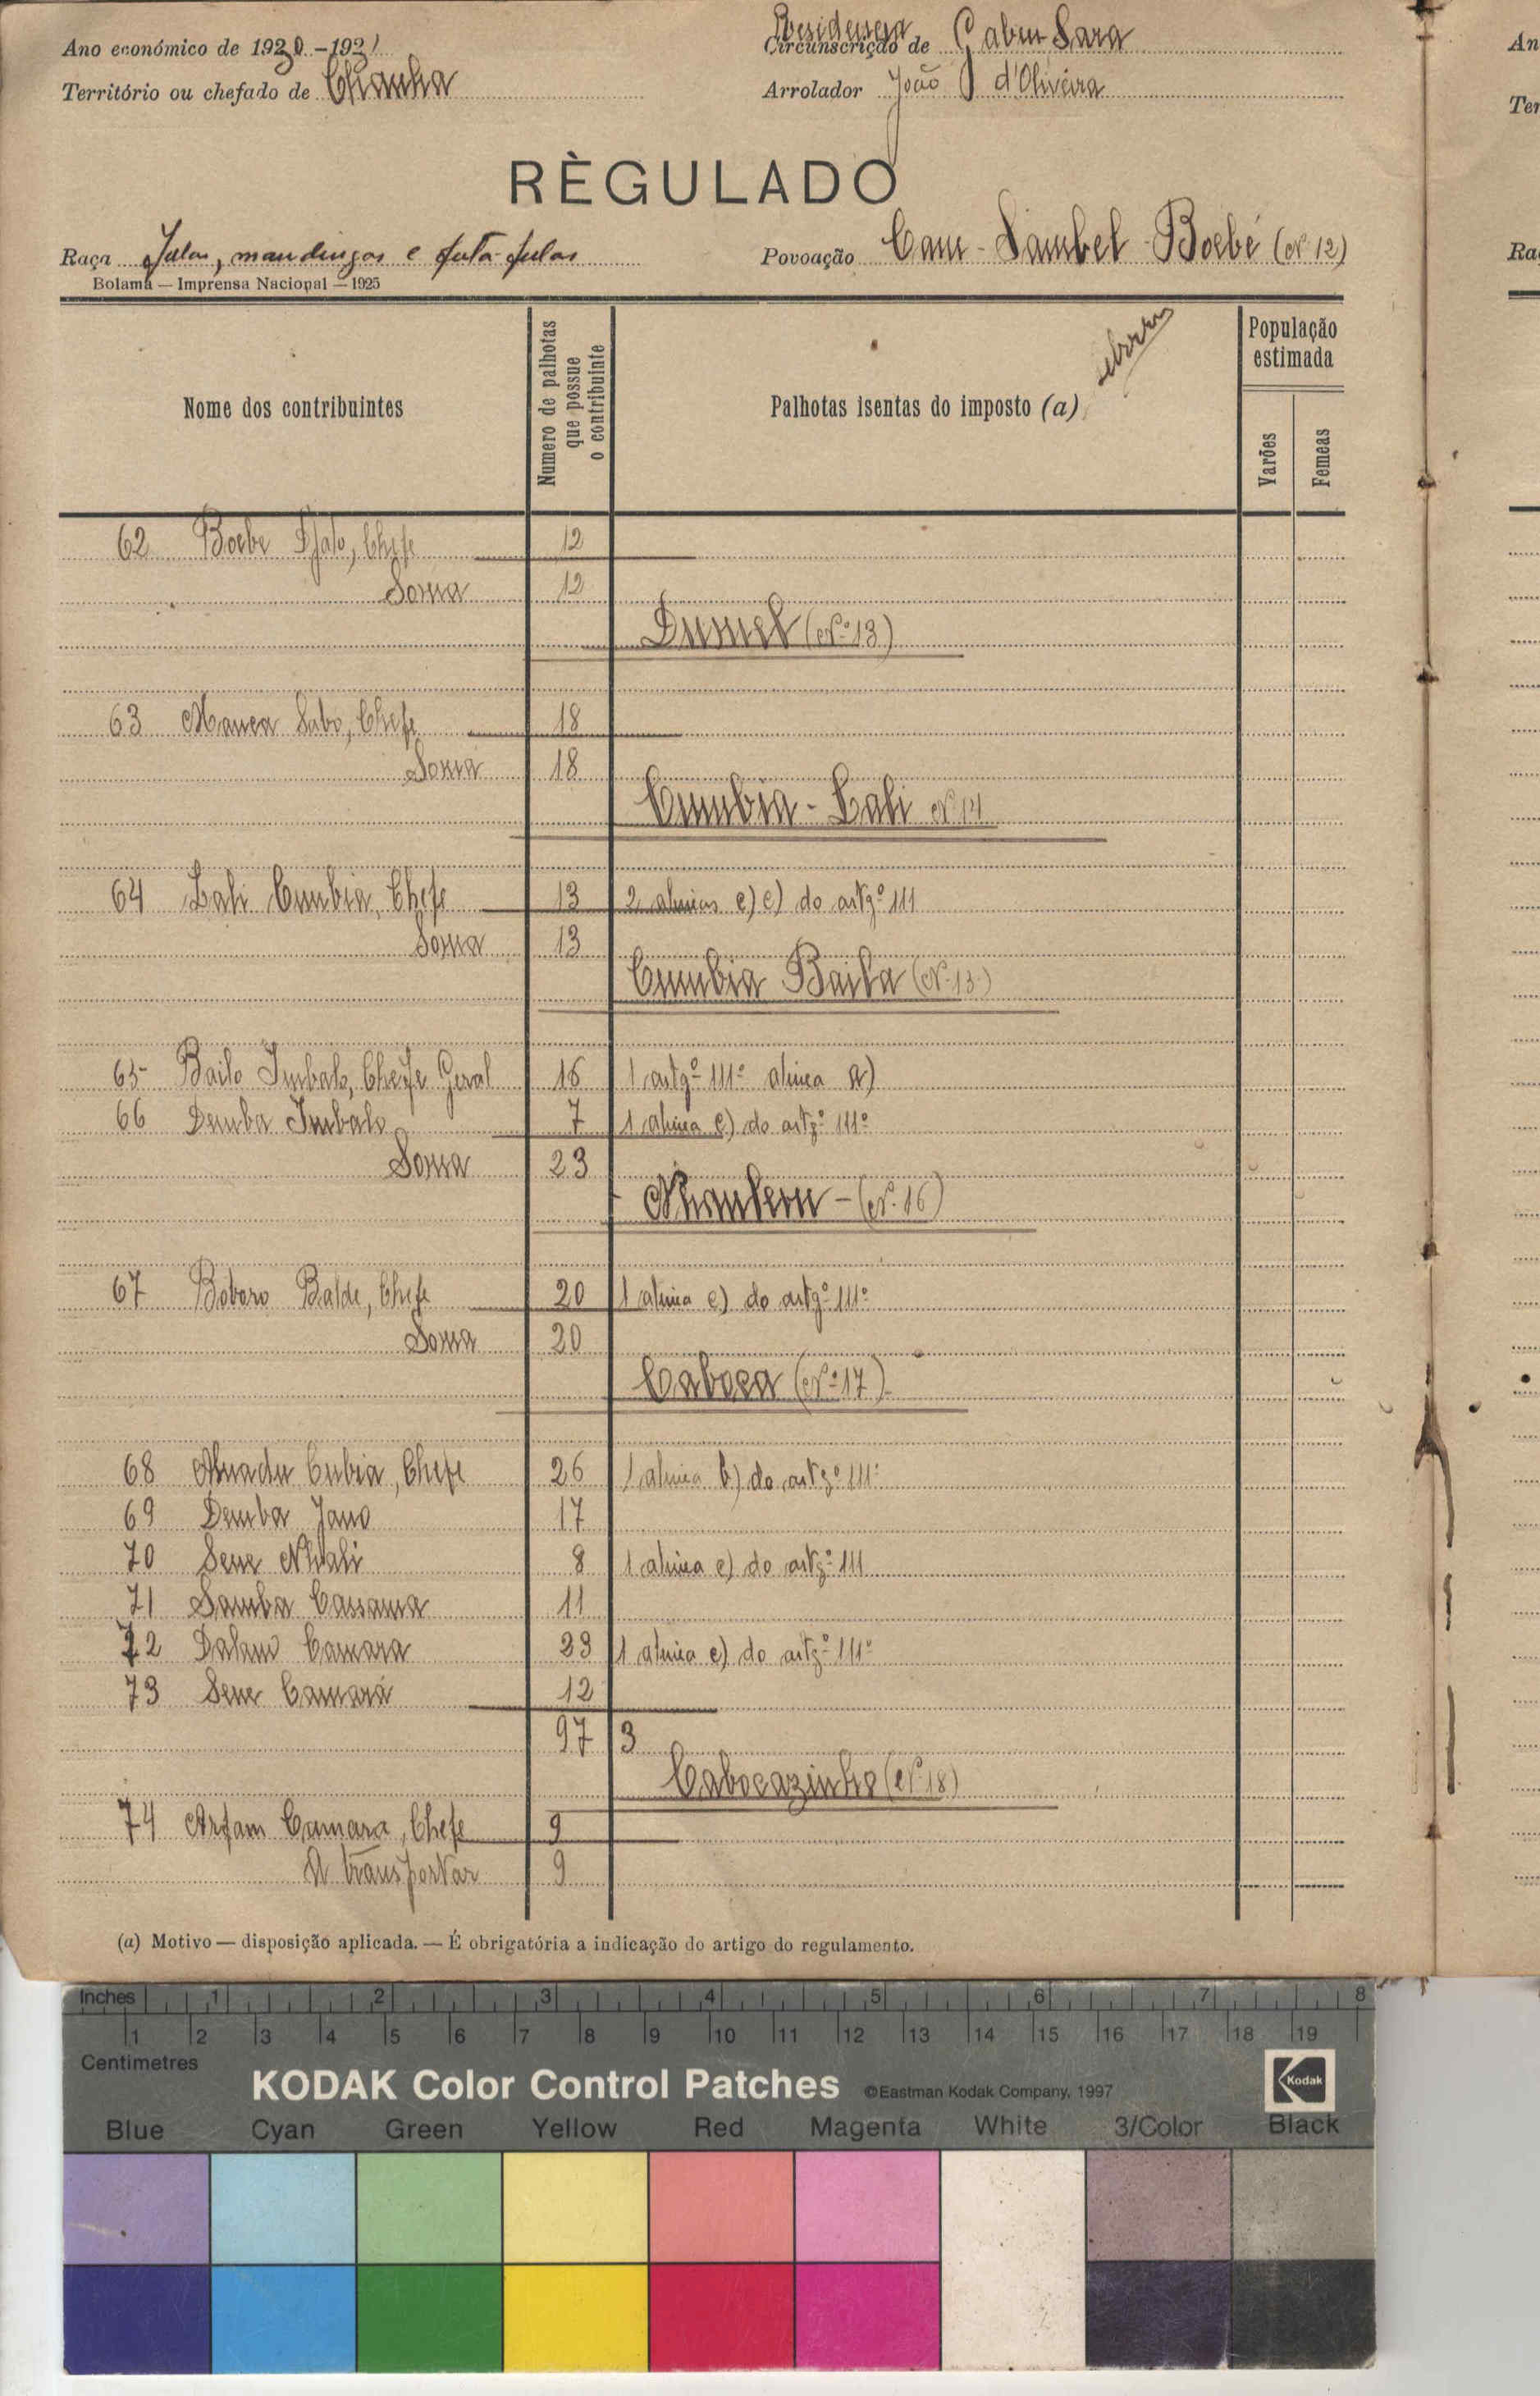 Ano económico de 1930-1931
Residencia
Circunscrição de Gabu Sara
Território ou chefado de Chanha
Arrolador João J d'Oliveira
RÈGULADO
Raça Fulas, mandingas e futa-fulas
Povoação Cam-Sambel-Boebé (Nº 12)
Bolama — Imprensa Nacional — 1925
Nome dos contribuintes
Numero de palhotas que possue o contribuinte
Palhotas isentas do imposto (a)
População estimada
Varões
Femeas
62 Boebe Djalo, Chefe 12
Soma 12
Dumel (Nº 13)
63 Manca Sabo, Chefe 18
Soma 18
Cumbia-Lali Nº 14
64 Lali Cumbia, Chefe 13 2 alineas e) e) do artgº 111
Soma 13
Cumbia Baila (Nº 13)
65 Bailo Imbalo, Chefe Geral 16 1 artgº 111º alinea a)
66 Demba Imbalo 7 1 alinea e) do artgº 111º
Soma 23
(Nº 16)
67 Boboro Balde, Chefe 20 1 alinea e) do artgº 111º
Soma 20
Caboca (Nº 17)
68 Amadu Cubia, Chefe 26 1 alinea b) do artgº 111º
69 Demba Jano 17
70 Sene Nhali 8 1 alinea e) do artgº 111
71 Samba Cassama 11
72 Dalam Camara 23 1 alinea e) do artgº 111º
73 Sene Camará 12
97 3
Cabocazinho (Nº 18)
74 Arfam Camara, Chefe 9
A transportar 9
(a) Motivo — disposição aplicada. — É obrigatória a indicação do artigo do regulamento.
Inches 1 2 3 4 5 6 7 8
1 2 3 4 5 6 7 8 9 10 11 12 13 14 15 16 17 18 19
Centimetres
KODAK Color Control Patches ©Eastman Kodak Company, 1997 Kodak
Blue Cyan Green Yellow Red Magenta White 3/Color Black